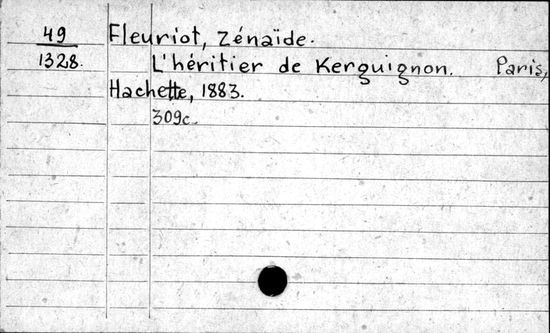 49 Fleuriot, Zénaïde.
1328. L'héritier de Kerguignon. Paris,
Hachette, 1883.
309c.